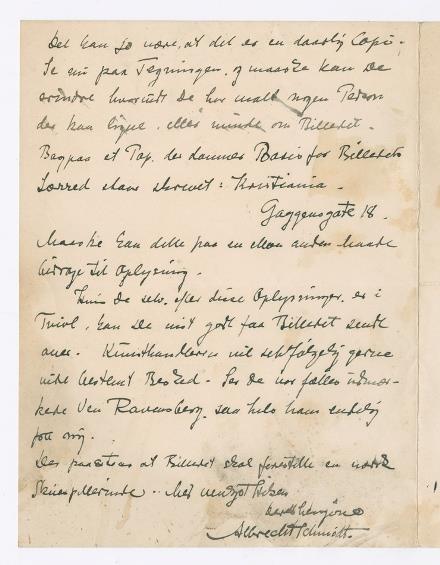 Det kan jo være, at det er en daarlig Copi.
Se nu paa Tegningen, og maaske kan De
erindre hvorvidt De har malt nogen Person
der kan ligne, eller minde om Billedet.
Bagpaa et Pap, der danner Basis for Billedets
Lærred staar skrevet: Kristiania.
Gaggensgate 18.
Maaske kan dette paa en eller anden Maade
bidrage til Oplysning.
Hvis De selv, efter disse Oplysninger, er i
Tvivl, kan De vist godt faa Billedet sendt
over. Kunsthandleren vil selvfølgelig gerne
vide bestemt Besked. Ser De vor fælles udmær-
kede Ven Ravensberg, saa hils ham endelig
fra mig.
Der paastaas at Billedet skal forestille en norsk
Skuespillerinde. Med venligst Hilsen
Deres hengivne
Albrecht Schmidt.